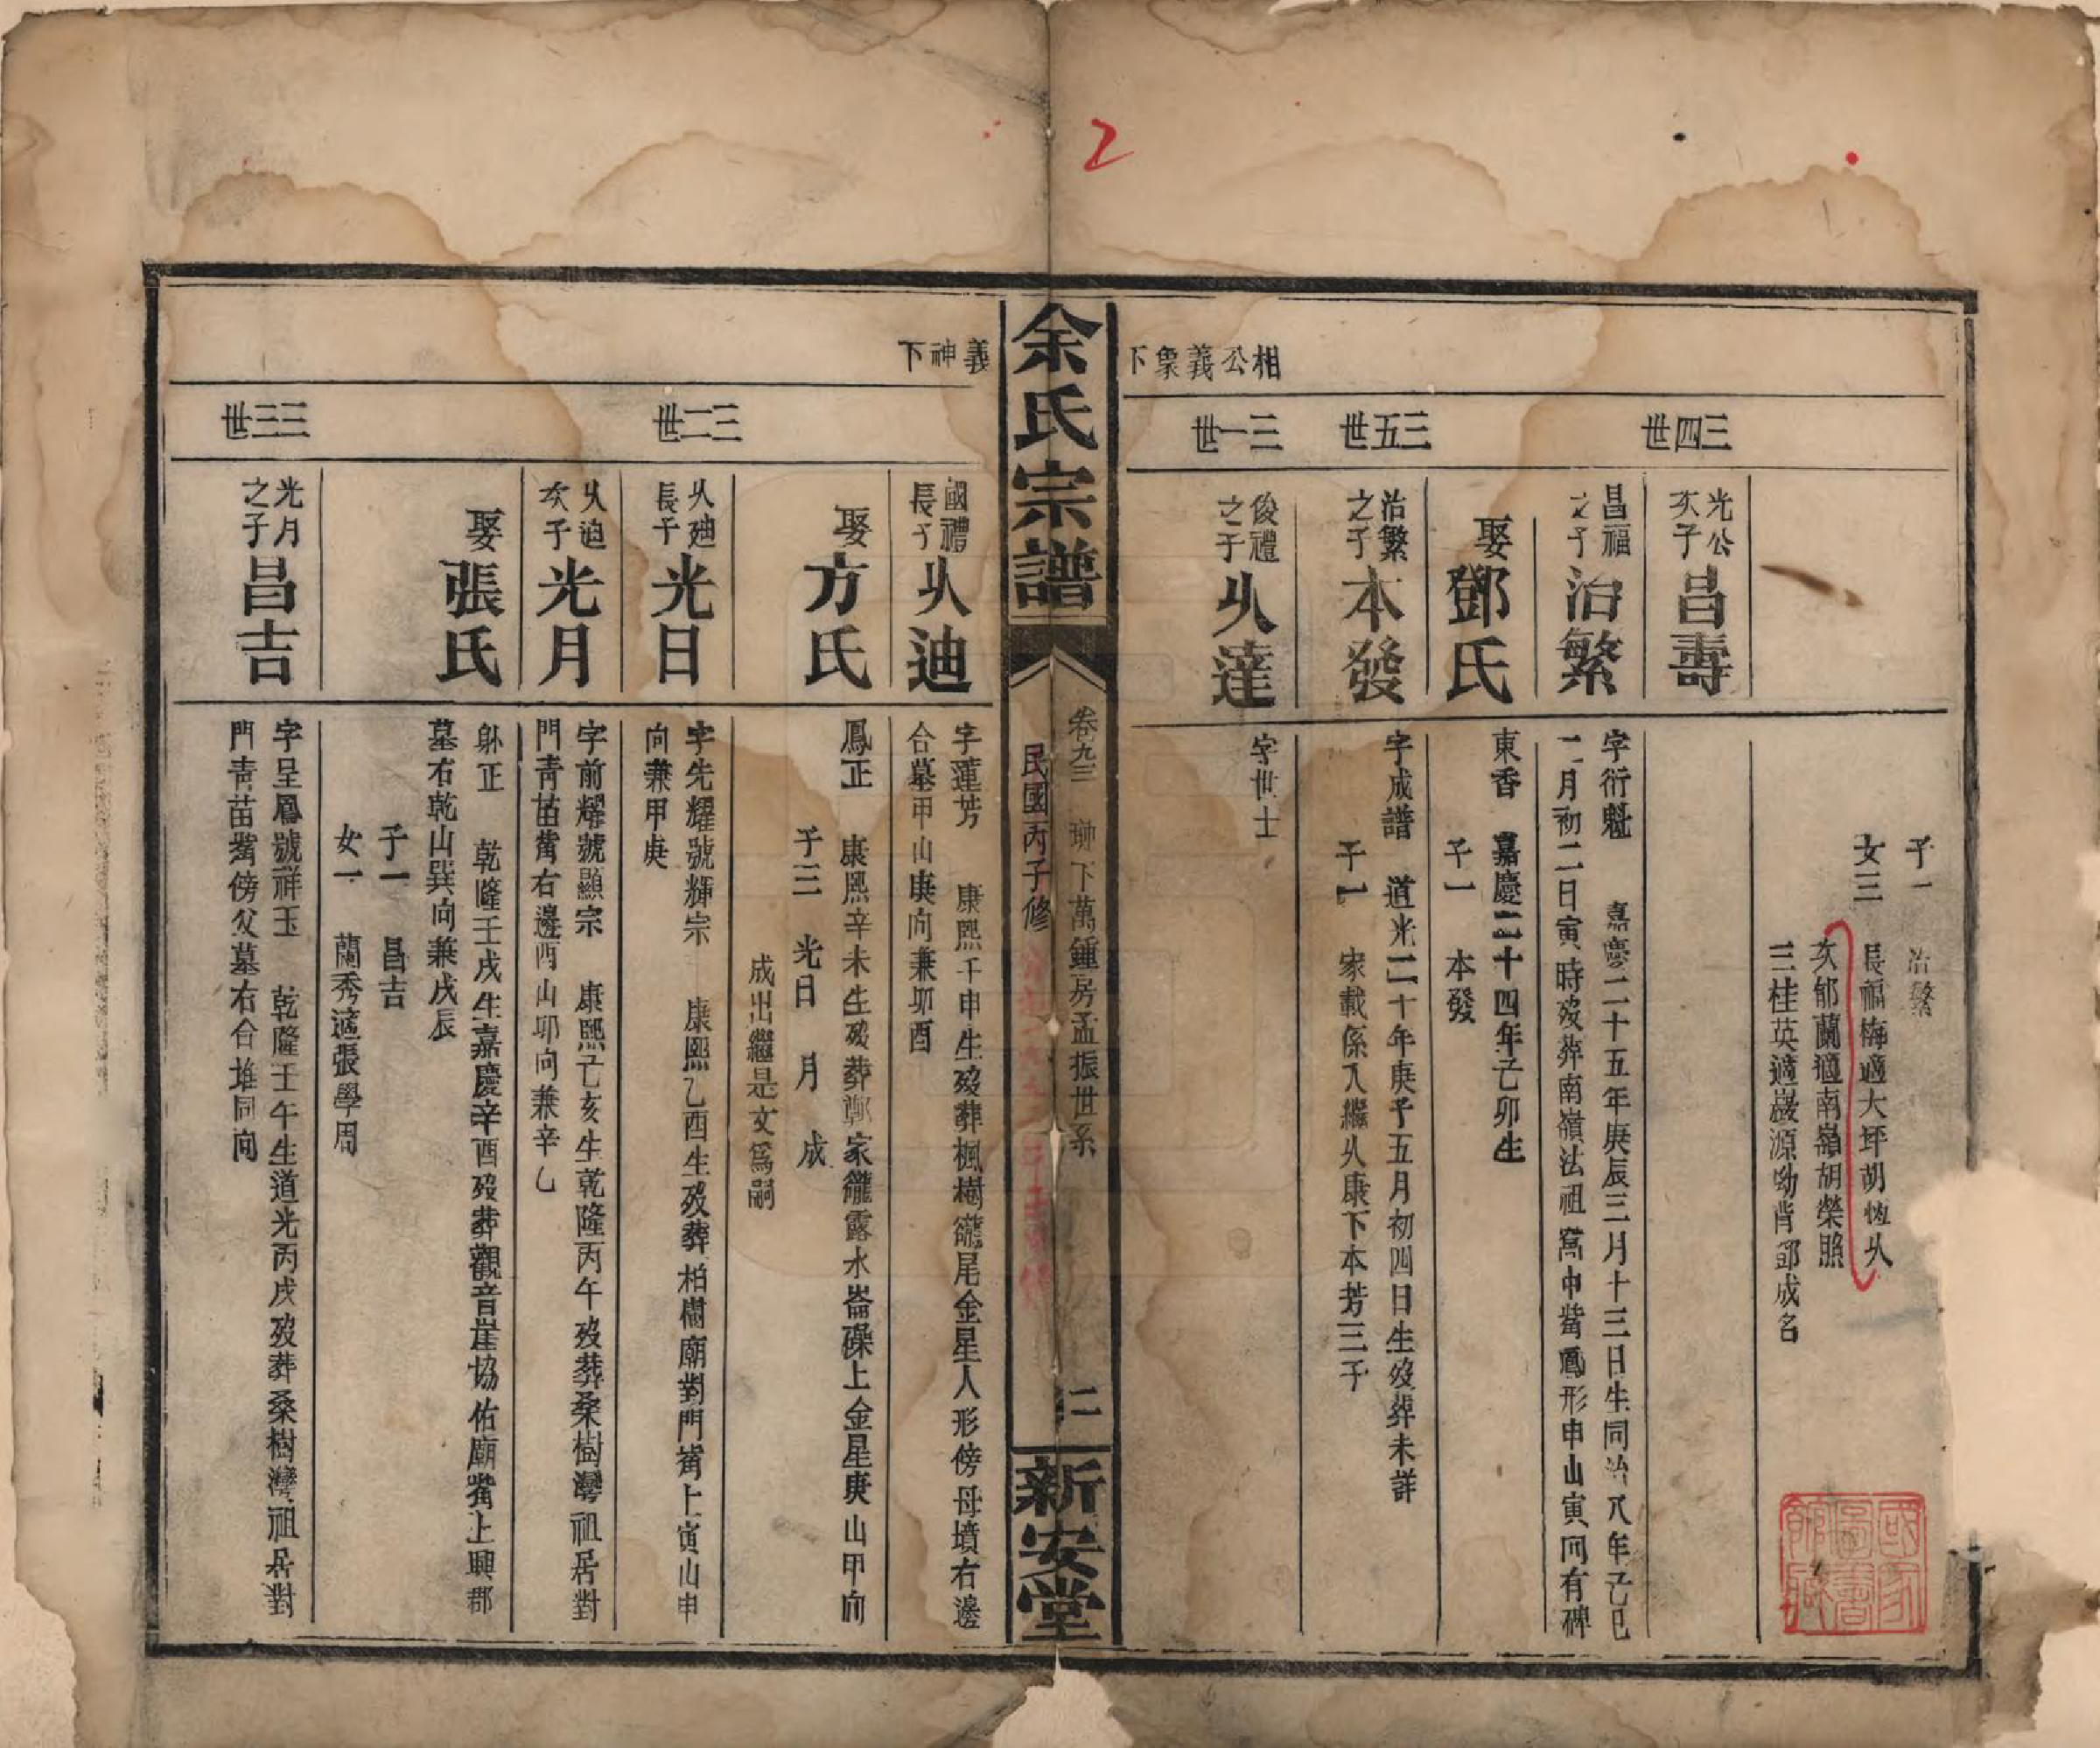 2
相公義象下
三四世
三五世
三一世
子一 治繁
女三 長福梅適大坪胡恆从
次郁蘭適南嶺胡榮照
三桂英適巖源坳背鄧成名
光公次子
昌壽
昌福之子
治繁
字衍魁 嘉慶二十五年庚辰三月十三日生同治八年己巳
二月初二日寅時歿葬南嶺法祖窩中嘴鳳形申山寅向有碑
娶鄧氏
東香 嘉慶二十四年己卯生
子一 本發
治繁之子
本發
字成譜 道光二十年庚子五月初四日生歿葬未詳
子一 家載係入繼从康下本芳三子
俊禮之子
从達
字世士
余氏宗譜
卷九三
下萬鍾房孟振世系
民國丙子修
二
新安堂
義神下
三二世
三三世
國禮長子
从迪
字蓮芳 康熙壬申生歿葬楓樹龓尾金星人形傍母墳右邊
合墓甲山庚向兼卯酉
娶方氏
鳳正 康熙辛未生歿葬鄭家龓露水崙磜上金星庚山甲向
子三 光日 月 成
成出繼是文爲嗣
从迪長子
光日
字先耀號輝宗 康熙乙酉生歿葬柏樹廟對門嘴上寅山申
向兼甲庚
从迪次子
光月
字前耀號顯宗 康熙己亥生乾隆丙午歿葬桑樹灣祖居對
門靑苗嘴右邊酉山卯向兼辛乙
娶張氏
躬正 乾隆壬戌生嘉慶辛酉歿葬觀音崖協佑廟嘴上興郡
墓右乾山巽向兼戌辰
子一 昌吉
女一 蘭秀適張學周
光月之子
昌吉
字呈鳳號祥玉 乾隆壬午生道光丙戌歿葬桑樹灣祖居對
門靑苗嘴傍父墓右合堆同向
國家圖書館藏